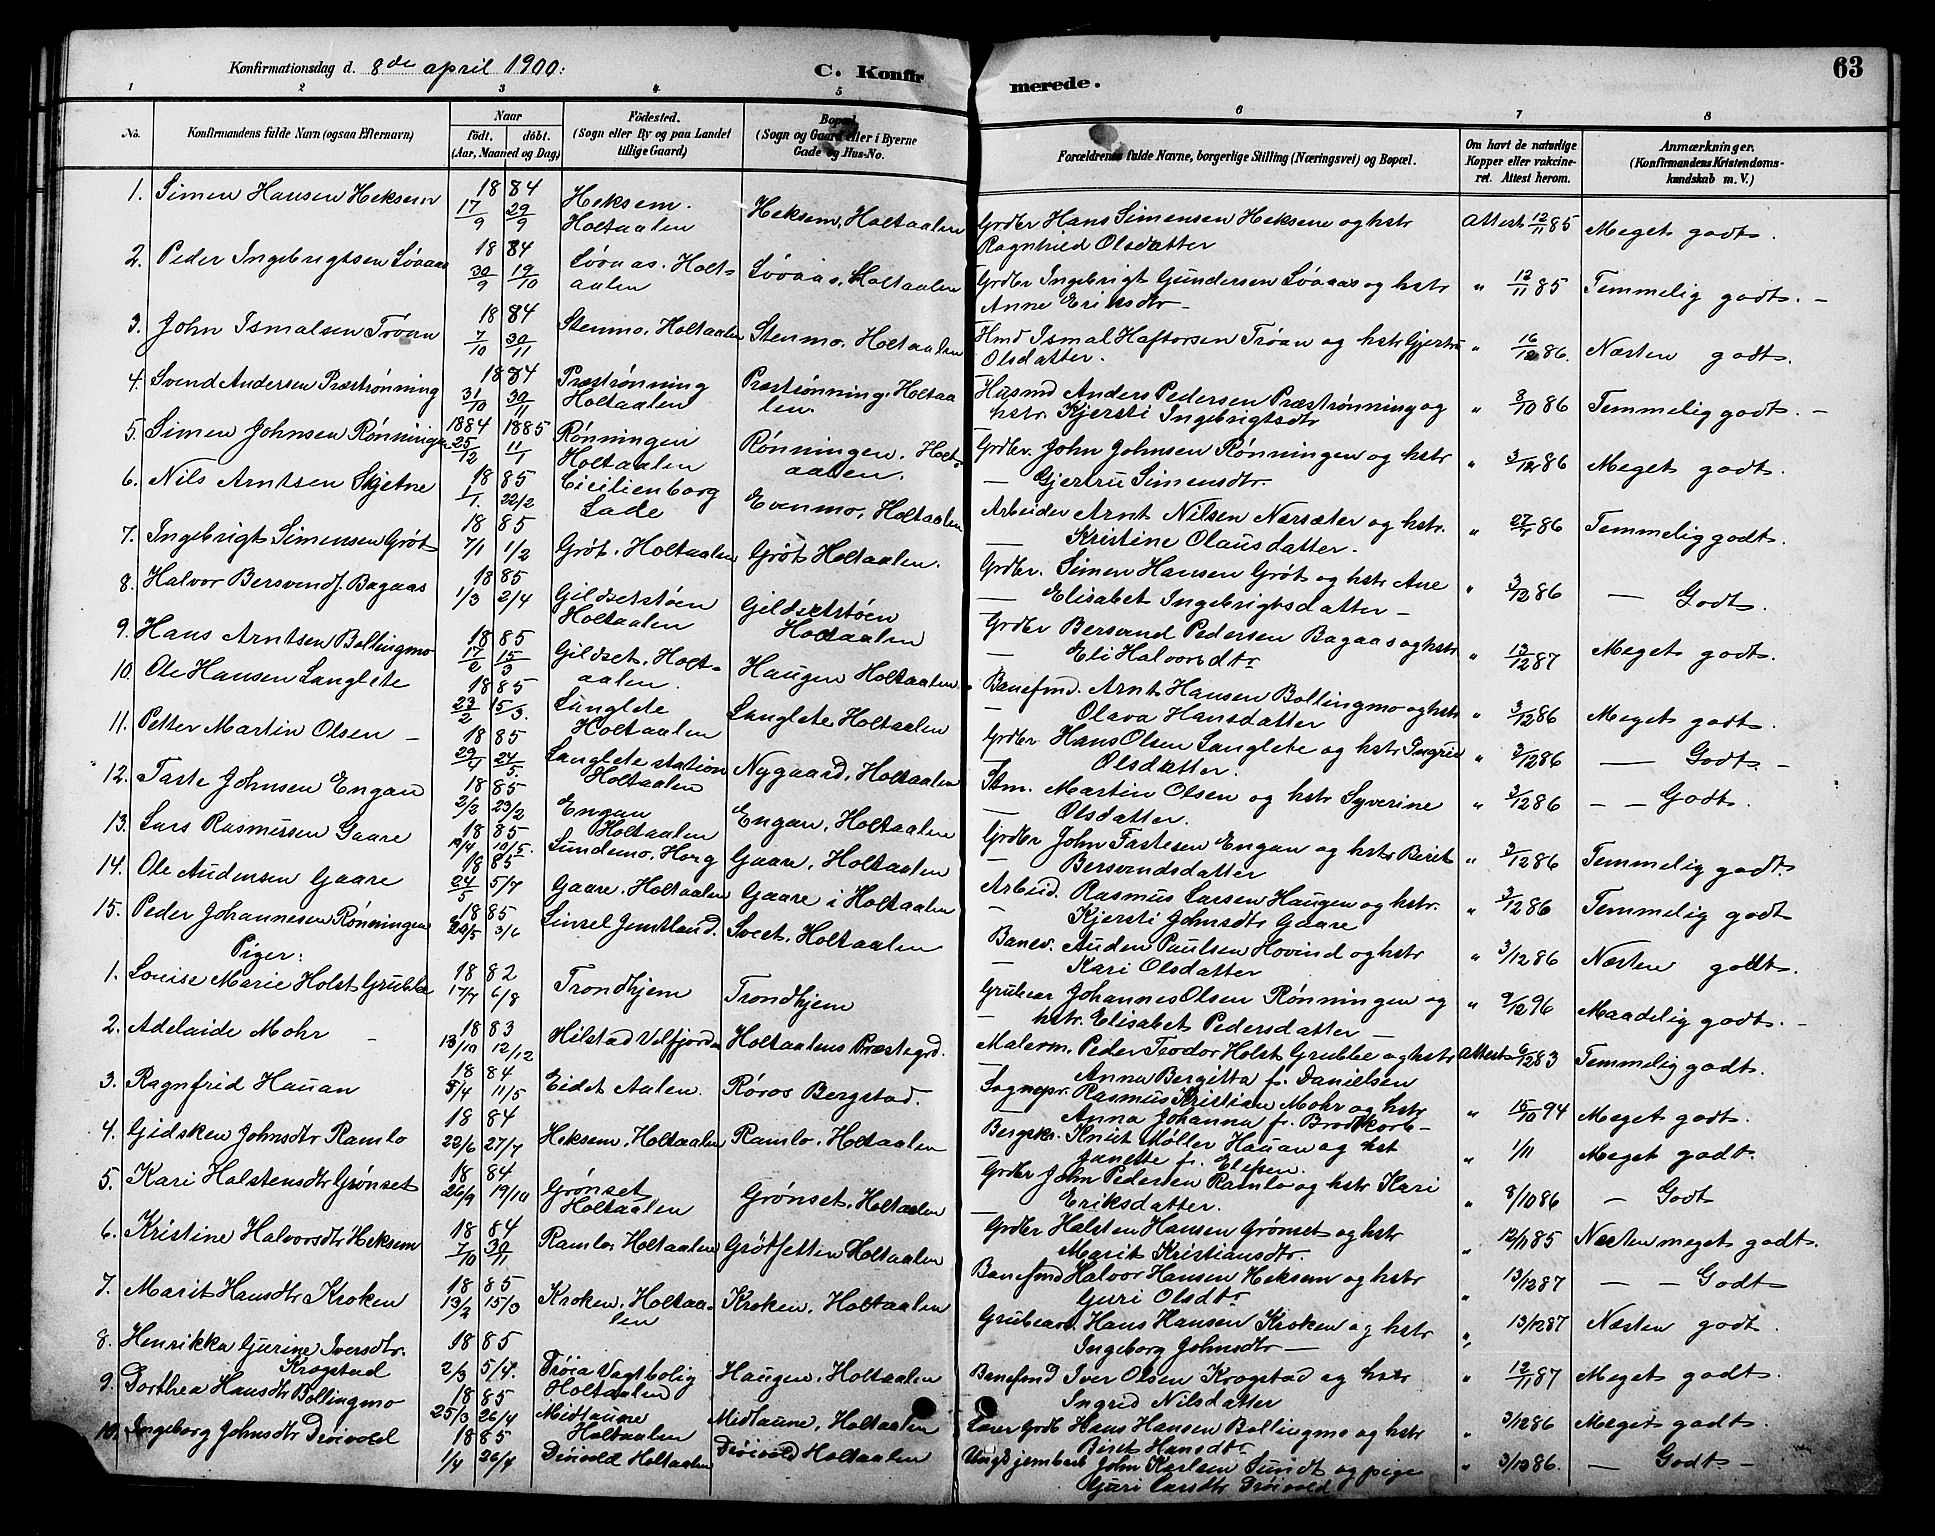 Konfirmationsdag d. 8de april 1900. C. Konfirmerede. 63
1 2 3 4 5 6 7 8
No. Konfirmandens fulde Navn (ogsaa Efternavn) Naar födt. döbt. (Aar, Maaned og Dag) Födested. (Sogn eller By og paa Landet tillige Gaard) Bopæl (Sogn og Gaard eller i Byerne Gade og Hus-No. Forældrenes fulde Navne, borgerlige Stilling (Næringsvei) og Bopæl. Om havt de naturlige Kopper eller vakcineret. Attest herom. Anmærkninger. (Konfirmandens Kristendomskundskab m. V.)
1. Simen Hansen Heksem 1884 17/9 29/9 Heksem. Holtaalen Heksem, Holtaalen Grdbr Hans Simensen Heksem og hstr Ragnhild Olsdatter Attest 12/11 85 Meget godt.
2. Peder Ingebrigtsen Løaas 1884 30/9 19/10 Løvaas. Holtaalen Løvaas, Holtaalen Grdbr Ingebrigt Gundersen Løvaas og hstr Anne Eriksdtr " 12/11 85 Temmelig godt. –
3. John Ismalsen Trøan 1884 7/10 30/11 Stenmo, Holtaalen Stenmo, Holtaalen Hmd Ismal Haftorsen Trøan og hstr Gjertru Olsdatter. " 16/12 86. Næsten godt.
4. Svend Andersen Præstrønning 1884 31/10 30/11 Præstrønning Holtaalen Præstrønning, Holtaalen. Husmd Anders Pedersen Præstrønning og hstr. Kjersti Ingebrigtsdtr " 8/10 86 Temmelig godt. –
5. Simen Johnsen Rønningen 1884 1885 25/12 11/1 Rønningen Holtaalen Rønningen, Holtaalen. Grdbr. John Johnsen Rønningen og hstr – Gjertru Simensdtr. " 3/12 86 Meget godt.
6. Nils Arntsen Skjetne 1885 1/1. 22/2 Cicilienborg Lade Evenmo, Holtaalen Arbeider Arnt Nilsen Nersæter og hstr. – Kristine Olausdatter. " 86 Temmelig godt.
7. Ingebrigt Simensen Grøt 1885 7/1 1/2 Grøt, Holtaalen Grøt Holtaalen. Grdbr. Simen Hansen Grøt og hstr Ane – Elisabet Ingebrigtsdatter – " 3/12 86 – Godt.
8. Halvor Bersvends. Bagaas 1885 1/3 2/4 Gildsetstøen Holtaalen Gildsetstøen Holtaalen Grdbr Bersvend Pedersen Bagaas og hstr – Eli Halvorsdtr " 13/12 87 Meget godt.
9. Hans Arntsen Bollingmo 1885 17/2 15/3 Gildset, Holtaalen. Haugen Holtaalen Banefmd. Arnt Hansen Bollingmo og hstr – Olava Hansdatter " 3/12 86 Meget godt.
10. Ole Hansen Langlete 1885 23/2 15/3. Langlete Holtaalen Langlete Holtaalen Grdbr Hans Olsen Langlete og hstr Ingrid Olsdatter. " 3/12 86 – Godt. –
11. Petter Martin Olsen – 1885 24/5. Langlete station Holtaalen Nygaard, Holtaalen Stm. Martin Olsen og hstr Syverine Olsdatter. " 3/12 86 – – Godt.
12. Faste Johnsen Engan 1885 2/2 23/2 Engan Holtaalen Engan, Holtaalen Grdbr John Fastesen Engan og hstr Beret – Bersvendsdatter " 3/12 86 Temmelig godt
13. Lars Rasmussen Gaare 1885 10/5. Sundemo, Horg Gaare, Holtaalen Arbeid. Rasmus Larsen Haugen og hstr. – Kjersti Johnsdtr Gaare " 3/12 86 Temmelig godt
14. Ole Audensen Gaare 1885 24/5 5/7 Gaare, Holtaalen Gaare i Holtaalen Banev. Auden Paulsen Hovind og hstr Kari Olsdatter " 3/12 86 Næsten godt.
15. Peder Johannesen Rønningen 1885 3/6 Sinsel Jemtland. Svet, Holtaalen Grubear Johannes Olsen Rønningen og – hstr. Elisabet Pedersdatter – " 9/12 96 Maadelig godt. –
Piger:
1. Louise Marie Holst Grubbe 1882 17/7 6/8 Trondhjem Trondhjem Malerm. Peder Teodor Holst Grubbe og hstr Anna Bergitta f. Danielsen Attest 6/12 83 Temmelig godt.
2. Adelaide Mohr – 1883 13/10 12/12 Hilstad Velfjorden Holtaalens Præstegrd. Sognepr. Rasmus Kristian Mohr og hstr Anna Johanna f. Brodtkorb – " 15/10 94 Meget godt.
3. Ragnfrid Hauan 1884 5/4 11/5 Eidet Aalen. Røros Bergstad. Bergskr. Knut Møller Hauan og hst Janette f. Elefsen. " 1/11 Meget godt.
4. Gidsken Johnsdtr Ramlo 1884 22/6 27/7 Heksem, Holtaalen Ramlo, Holtaalen Grdbr John Pedersen Ramlo og hstr Kari – Eriksdatter. " 8/10 86 – Godt
5. Kari Halstensdtr Grønset 1884 26/9 19/10 Grønset Holtaalen Grønset, Holtaalen Grdbr Halsten Hansen Grønset og hstr Marit Kristiansdtr. " 12/11 85 Næsten meget godt.
6. Kristine Halvorsdtr Heksem 1884 7/10 30/11 Ramlo, Holtaalen Grøtfetten Holtaalen Banefmd Halvor Hansen Heksem og hstr Guri Olsdtr " 13/12 87 – – Godt
7. Marit Hansdtr Kroken 1885 13/2 15/3 Kroken, Holtaalen Kroken, Holtaalen Grubearb. Hans Hansen Kroken og hstr Ingeborg Johnsdtr – " 13/12 87 Næsten godt.
8. Henrikka Gurine Iversdtr. Krogstad 1885 2/3 5/4. Drøia Vagtbolig Holtaalen Haugen, Holtaalen Banefmd Iver Olsen Krogstad og hstr Ingrid Nilsdatter " 12/11 87 Meget godt.
9. Dorthea Hansdtr Bollingmo 1885 25/3 26/4 Midtaune Holtaalen Midtaune, Holtaalen Hans Hansen Bollingmo og hstr Beret Hansdtr " 3/12 86 Meget godt.
10. Ingeborg Johnsdtr Drøivold 1885 1/4 26/4 Drøivold Holtaalen Drøivold Holtaalen John Karlsen Sundt og pige Guri Larsdtr Drøivold " 86. – Godt –